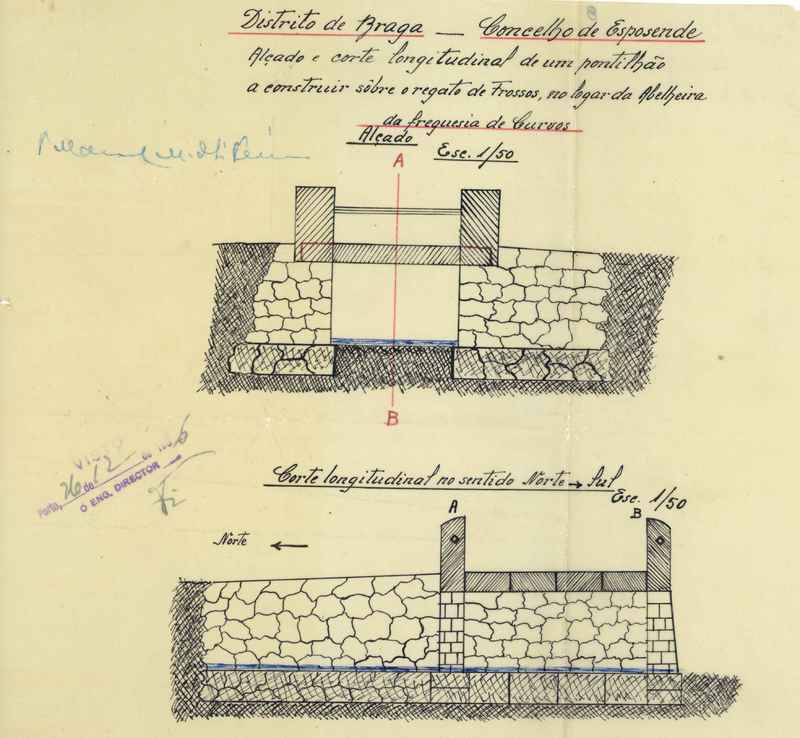 Distrito de Braga — Concelho de Esposende
Alçado e corte longitudinal de um pontilhão
a construir sôbre o regato de Frossos, no logar da Abelheira
da freguesia de Curvos
Alçado Esc. 1/50
A
B
VISTO
Porto, 26 de 12 de 1936
O ENG. DIRECTOR
Corte longitudinal no sentido Norte → Sul
Esc. 1/50
A B
Norte ←